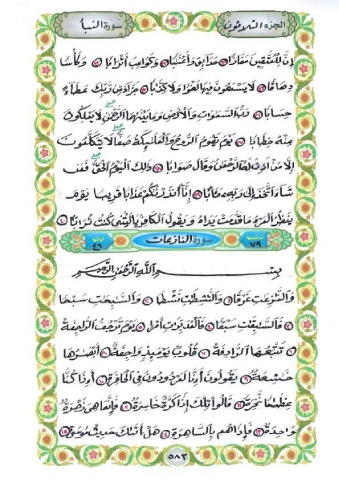 الجزء الثلاثون سورة النبأ
إِنَّ لِلْمُتَّقِينَ مَفَازًا حَدَائِقَ وَأَعْنَابًا وَكَوَاعِبَ أَتْرَابًا وَكَأْسًا
دِهَاقًا لَا يَسْمَعُونَ فِيهَا لَغْوًا وَلَا كِذَّابًا جَزَاءً مِنْ رَبِّكَ عَطَاءً
حِسَابًا رَبِّ السَّمَوَاتِ وَالْأَرْضِ وَمَا بَيْنَهُمَا الرَّحْمَنِ لَا يَمْلِكُونَ
مِنْهُ خِطَابًا يَوْمَ يَقُومُ الرُّوحُ وَالْمَلَائِكَةُ صَفًّا لَا يَتَكَلَّمُونَ
إِلَّا مَنْ أَذِنَ لَهُ الرَّحْمَنُ وَقَالَ صَوَابًا ذَلِكَ الْيَوْمُ الْحَقُّ فَمَنْ
شَاءَ اتَّخَذَ إِلَى رَبِّهِ مَآبًا إِنَّا أَنْذَرْنَاكُمْ عَذَابًا قَرِيبًا يَوْمَ
يَنْظُرُ الْمَرْءُ مَا قَدَّمَتْ يَدَاهُ وَيَقُولُ الْكَافِرُ يَا لَيْتَنِي كُنْتُ تُرَابًا
٧٩ سورة النازعات ٤٦
بِسْمِ اللَّهِ الرَّحْمَنِ الرَّحِيمِ
وَالنَّازِعَاتِ غَرْقًا وَالنَّاشِطَاتِ نَشْطًا وَالسَّابِحَاتِ سَبْحًا
فَالسَّابِقَاتِ سَبْقًا فَالْمُدَبِّرَاتِ أَمْرًا يَوْمَ تَرْجُفُ الرَّاجِفَةُ
تَتْبَعُهَا الرَّادِفَةُ قُلُوبٌ يَوْمَئِذٍ وَاجِفَةٌ أَبْصَارُهَا
خَاشِعَةٌ يَقُولُونَ أَإِنَّا لَمَرْدُودُونَ فِي الْحَافِرَةِ أَإِذَا كُنَّا
عِظَامًا نَخِرَةً قَالُوا تِلْكَ إِذًا كَرَّةٌ خَاسِرَةٌ فَإِنَّمَا هِيَ زَجْرَةٌ
وَاحِدَةٌ فَإِذَا هُمْ بِالسَّاهِرَةِ هَلْ أَتَاكَ حَدِيثُ مُوسَى
٥٨٣